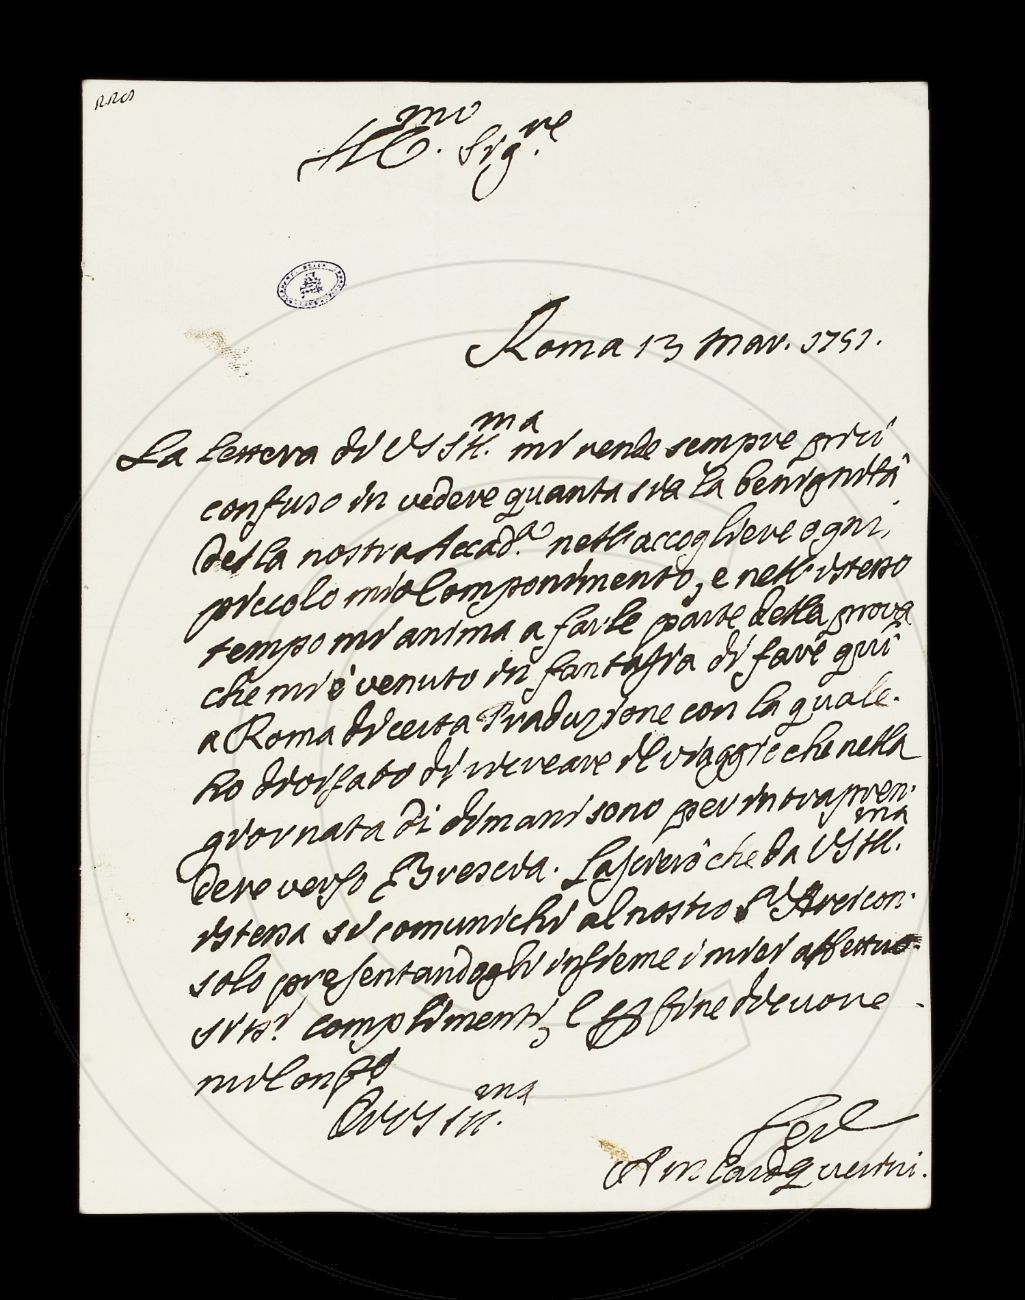 Ill.mo Sig.re
Roma 13 Mar. 1751.
La lettera di VS Ill.ma mi rende sempre più
confuso in vedere quanta sia la benignità
della nostra Accad.a nell'accogliere ogni
piccolo mio Componimento, e nell'istesso
tempo mi anima a farle parte della prova
che mi è venuto in fantasia di fare quì
a Roma di certa Traduzione con la quale
ho di ricreare il viaggio che nella
giornata di dimani sono per intrapren-
dere verso Brescia. Lascierò che da VS Ill.ma
istessa si comunichi al nostro Sr Arcicon-
solo presentandogli insieme i miei affettuo-
siss.i complimenti, e fine di cuore
mi
Di VS Ill.ma
A M Card Querini.